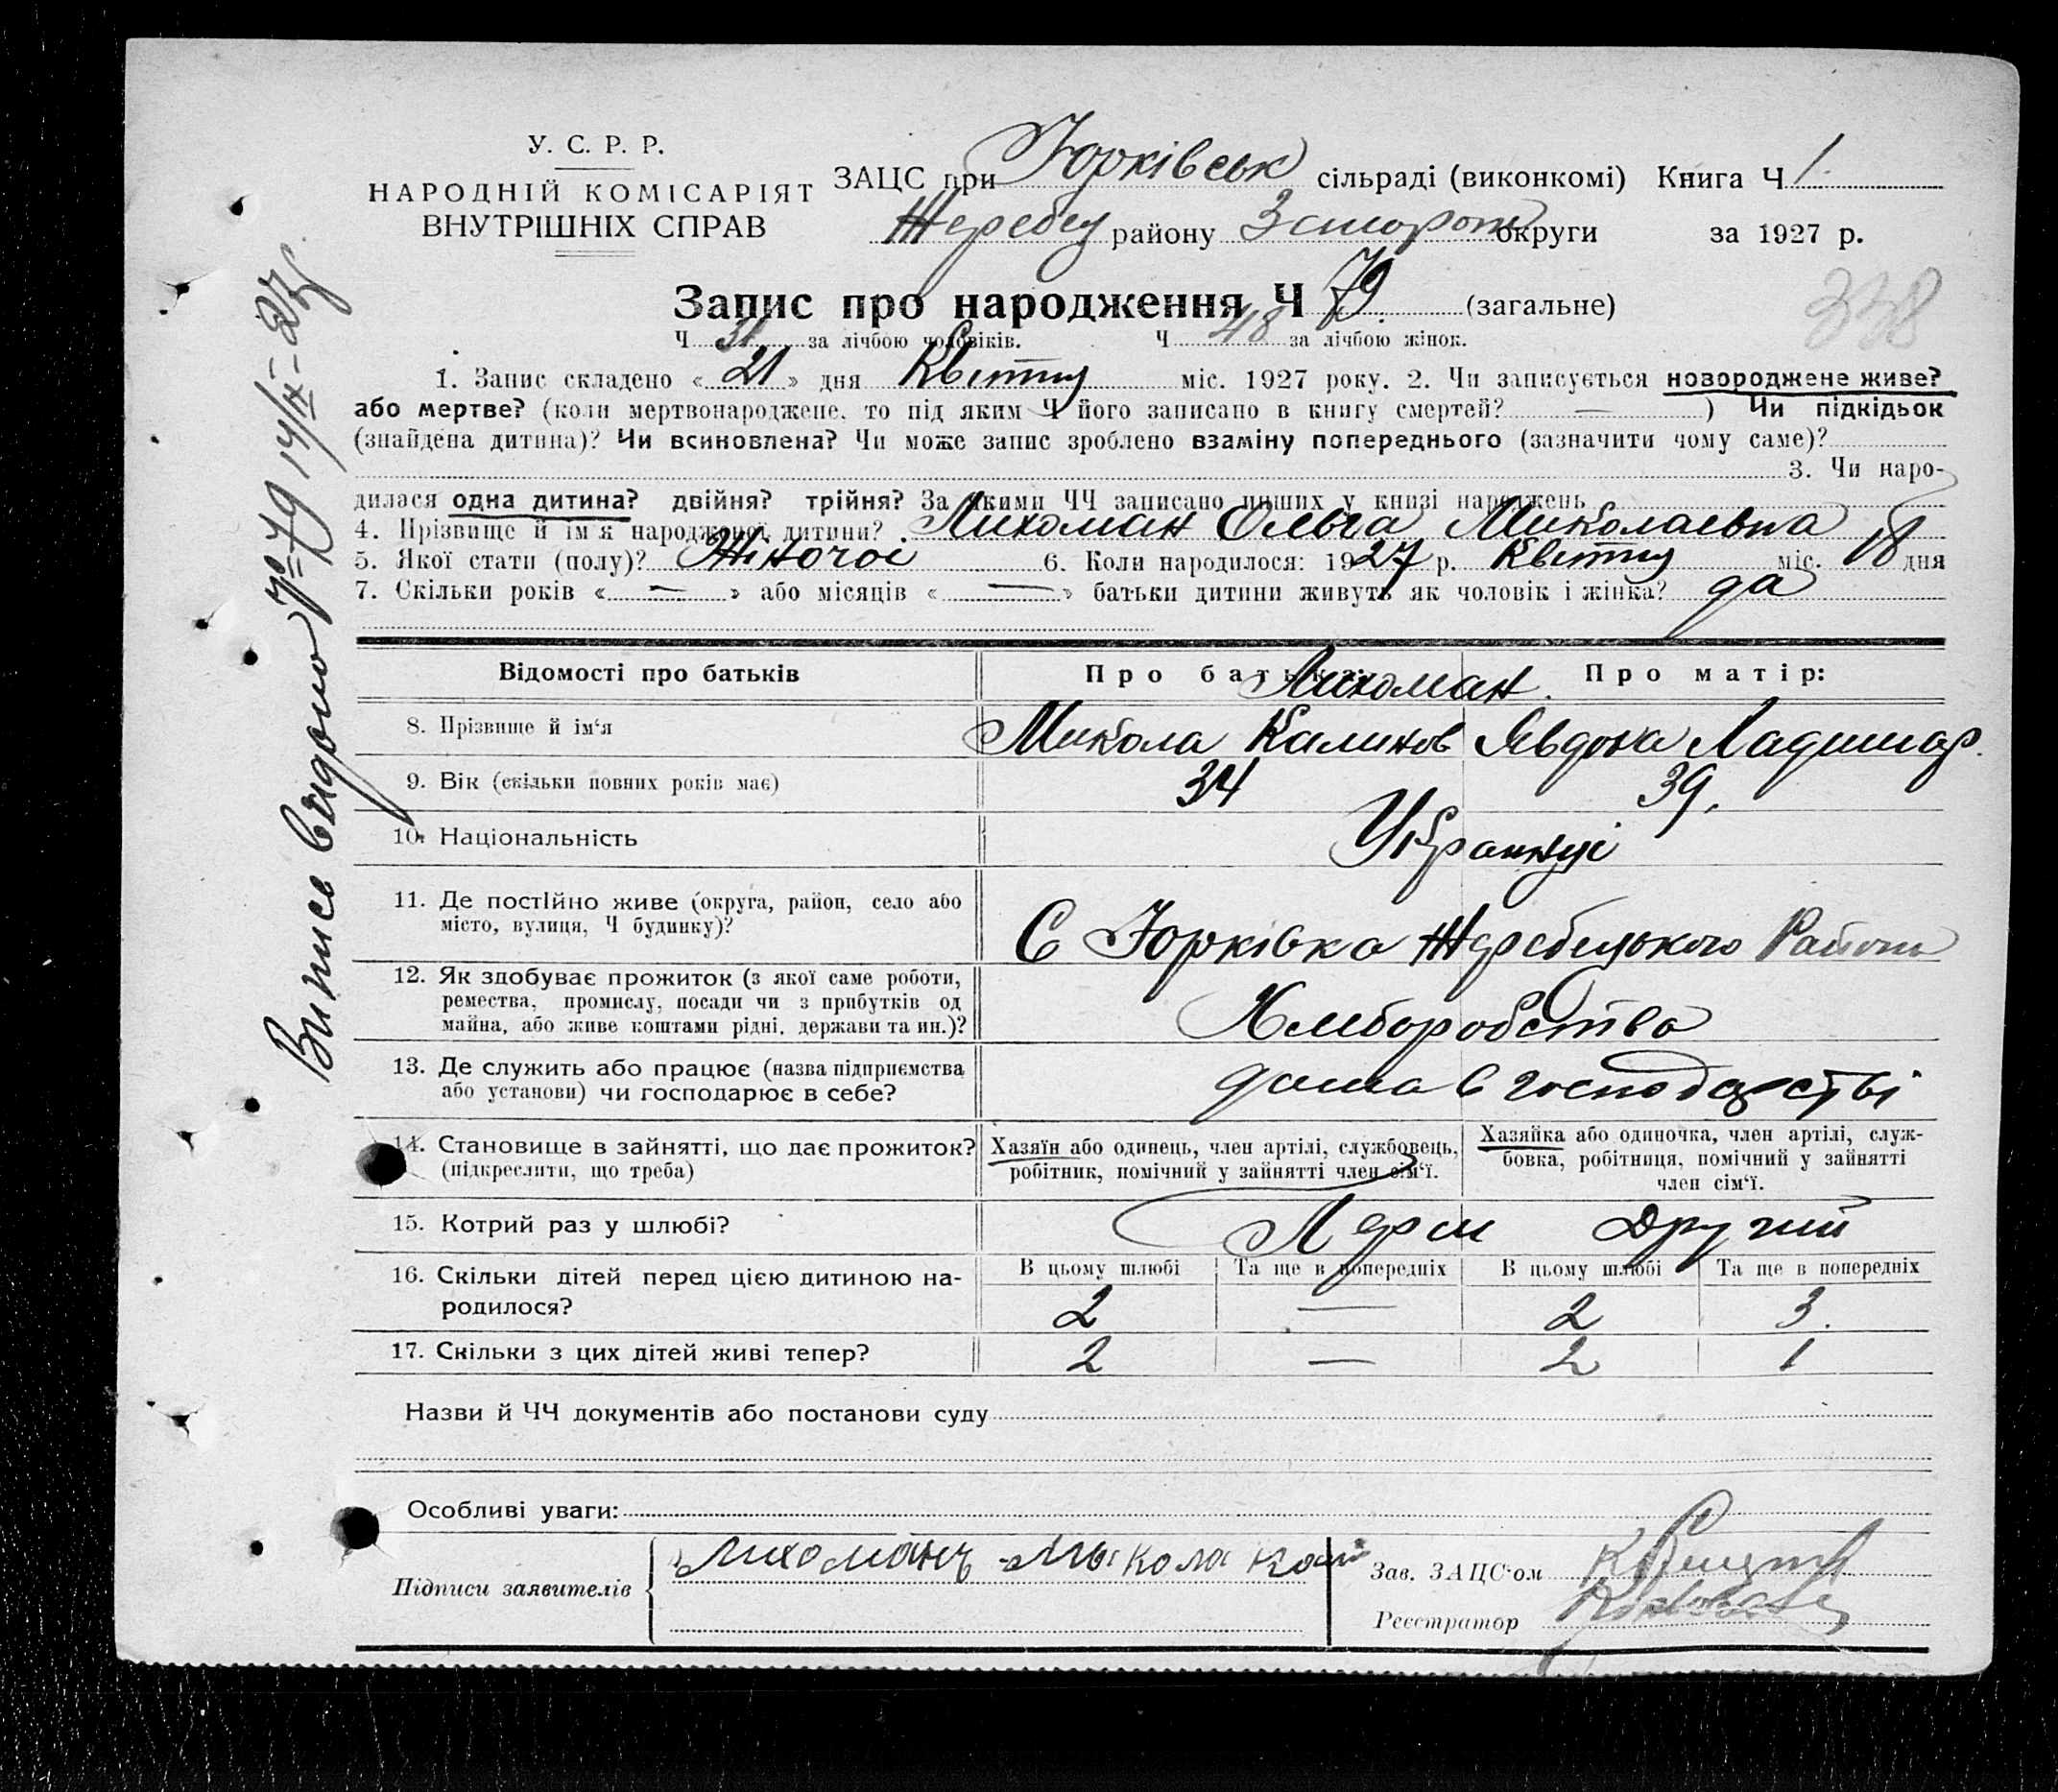 У. С. Р. Р.
НАРОДНІЙ КОМІСАРІЯТ
ВНУТРІШНІХ СПРАВ
ЗАЦС при Юрківськ сільраді (виконкомі) Книга Ч 1.
Жеребец району Запорож округи за 1927 р.
338
Запис про народження Ч 79. (загальне)
Ч 31 за лічбою чоловіків. Ч 48 за лічбою жінок.
1. Запис складено « 21 » дня Квітня міс. 1927 року. 2. Чи записується новороджене живе?
або мертве? (коли мертвонароджене, то під яким Ч його записано в книгу смертей? — ) Чи підкідьок
(знайдена дитина)? Чи всиновлена? Чи може запис зроблено взаміну попереднього (зазначити чому саме)?
3. Чи наро-
дилася одна дитина? двійня? трійня? За якими ЧЧ записано инших у книзі народжень
4. Прізвище й ім'я народженої дитини? Лихоман Ольга Миколаевна
5. Якої стати (полу)? Жіночої 6. Коли народилося: 1927 р. Квітня міс. 18 дня
7. Скільки років « — » або місяців « — » батьки дитини живуть як чоловік і жінка? да
Відомості про батьків Про батька: Про матір:
Лихоман.
8. Прізвище й ім'я Микола Калинов Явдоха
9. Вік (скільки повних років має) 34 39.
10. Національність Украинці
11. Де постійно живе (округа, район, село або
місто, вулиця, Ч будинку)?
С Юрківка Жеребецького Району
12. Як здобуває прожиток (з якої саме роботи,
ремества, промислу, посади чи з прибутків од
майна, або живе коштами рідні, держави та ин.)?
Хлеборобство
13. Де служить або працює (назва підприємства
або установи) чи господарює в себе?
дома в господарстві
14. Становище в зайнятті, що дає прожиток?
(підкреслити, що треба)
Хазяїн або одинець, член артілі, службовець,
робітник, помічний у зайнятті член сім'ї.
Хазяйка або одиночка, член артілі, служ-
бовка, робітниця, помічний у зайнятті
член сім'ї.
15. Котрий раз у шлюбі? Перш Другий
16. Скільки дітей перед цією дитиною на-
родилося?
В цьому шлюбі Та ще в попередніх В цьому шлюбі Та ще в попередніх
2 — 2 3.
17. Скільки з цих дітей живі тепер? 2 — 2 1
Назви й ЧЧ документів або постанови суду
Особливі уваги:
Підписи заявителів Лихоманъ Мыкола
Зав. ЗАЦС'ом
Реєстратор
Випись видано № 79 14/IX-27